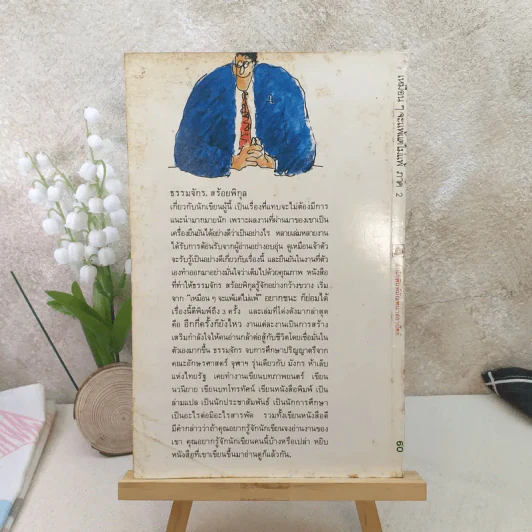 ธรรมจักร. สร้อยพิกุล
เกี่ยวกับนักเขียนผู้นี้ เป็นเรื่องที่แทบจะไม่ต้องมีการ
แนะนำมากมายนัก เพราะผลงานที่ผ่านมาของเขาเป็น
เครื่องยืนยันได้อย่างดีว่าเป็นอย่างไร หลายเล่มหลายงาน
ได้รับการต้อนรับจากผู้อ่านอย่างอบอุ่น ดูเหมือนเจ้าตัว
จะรับรู้เป็นอย่างดีเกี่ยวกับเรื่องนี้ และยืนยันในงานที่ตัว
เองทำออกมาอย่างมั่นใจว่าเต็มไปด้วยคุณภาพ หนังสือ
ที่ทำให้ธรรมจักร สร้อยพิกุลรู้จักอย่างกว้างขวาง เริ่ม
จาก "เหมือน ๆ จะแพ้แต่ไม่แพ้" อยากชนะ ก็ย่อมได้
เรื่องนี้ตีพิมพ์ถึง 3 ครั้ง และเล่มที่โด่งดังมากล่าสุด
คือ อีกกี่ครั้งก็ยังไหว งานแต่ละงานเป็นการสร้าง
เสริมกำลังใจให้คนอ่านกล้าต่อสู้กับชีวิตโดยเชื่อมั่นใน
ตัวเองมากขึ้น ธรรมจักร จบการศึกษาปริญญาตรีจาก
คณะอักษรศาสตร์ จุฬาฯ รุ่นเดียวกับ มังกร ห้าเล็บ
แห่งไทยรัฐ เคยทำงานเขียนบทภาพยนตร์ เขียน
นวนิยาย เขียนบทโทรทัศน์ เขียนหนังสือพิมพ์ เป็น
ล่ามแปล เป็นนักประชาสัมพันธ์ เป็นนักการศึกษา
เป็นอะไรต่อมิอะไรสารพัด รวมทั้งเขียนหนังสือดี
มีคำกล่าวว่าถ้าคุณอยากรู้จักนักเขียนจงอ่านงานของ
เขา คุณอยากรู้จักนักเขียนคนนี้บ้างหรือเปล่า หยิบ
หนังสือที่เขาเขียนขึ้นมาอ่านดูก็แล้วกัน.
เหมือน ๆ จะแพ้แต่ไม่แพ้ ภาค 2
60